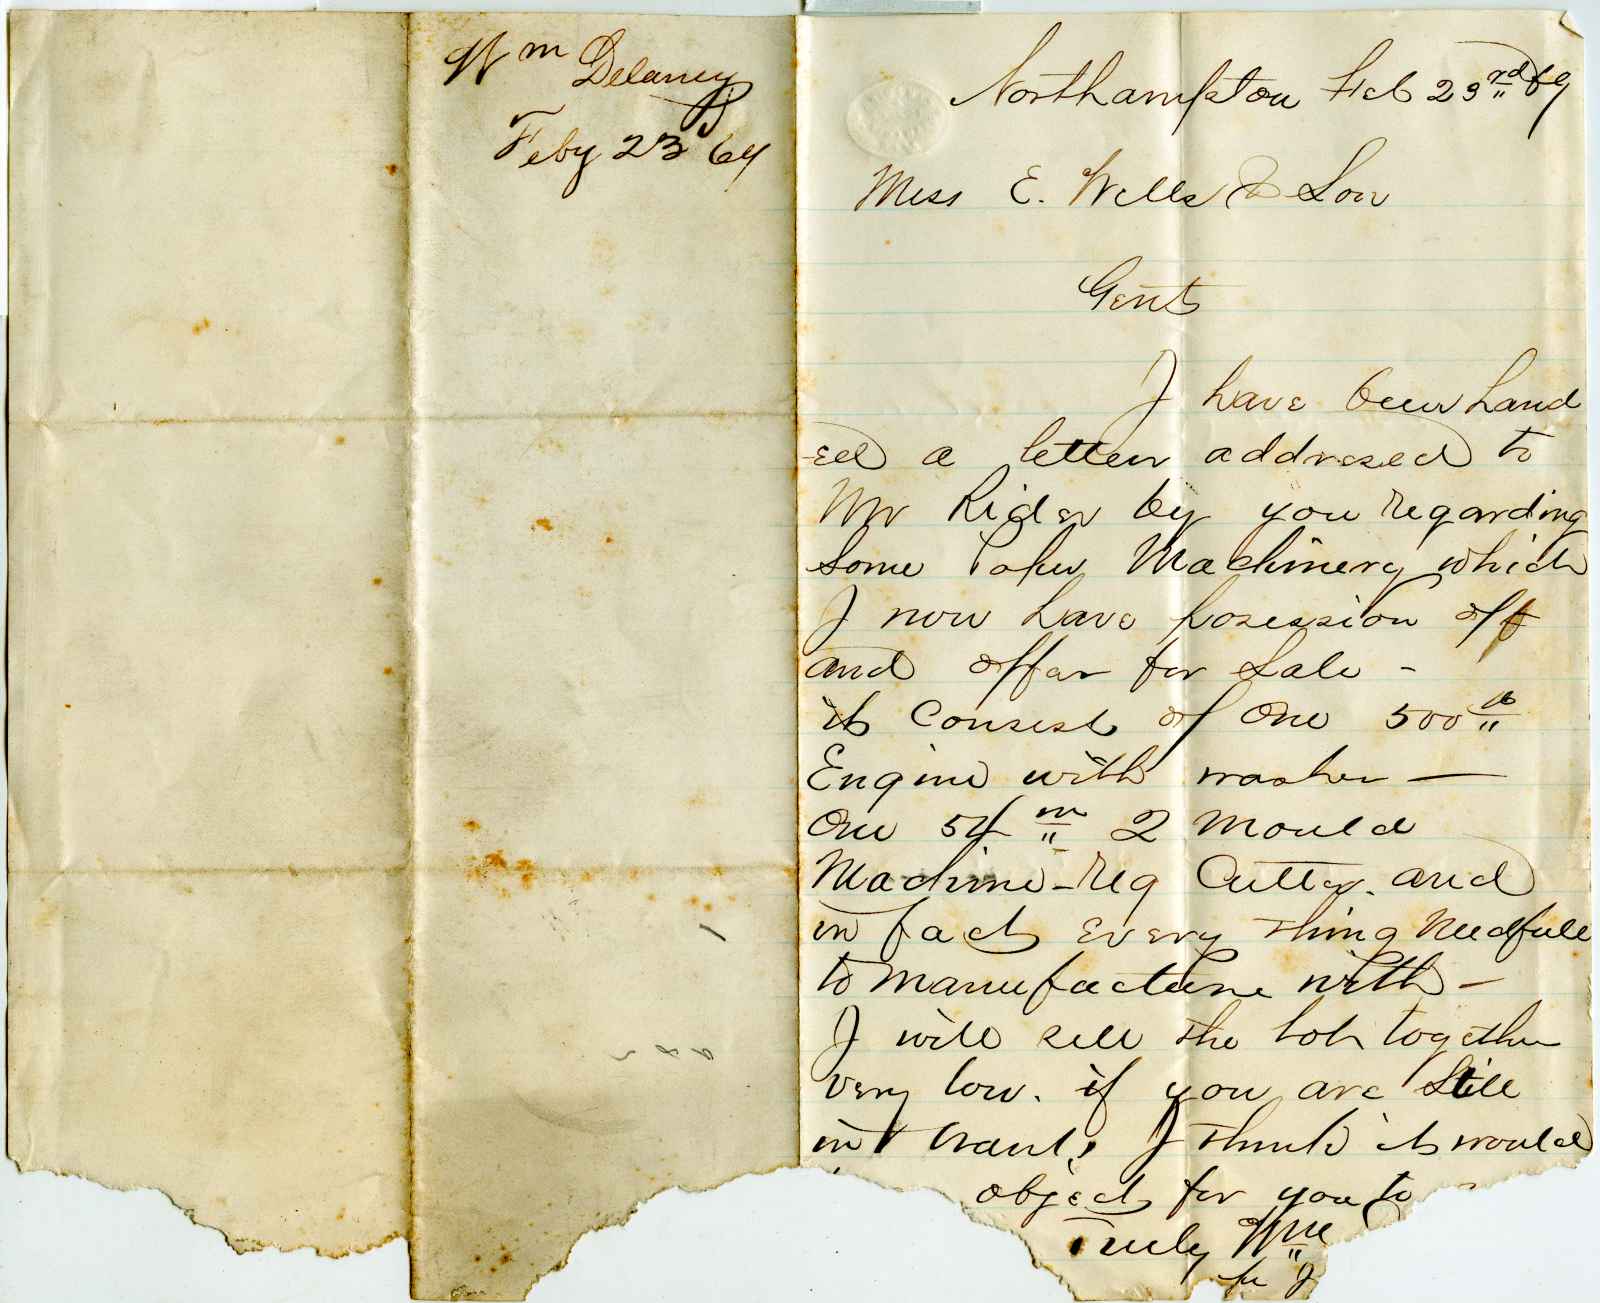 Wm Delaney
Feby 23 64
Northampton Feb 23rd 64
Mess E. Wells & Son
Gent
I have been hand
-ed a letter addresed to
Mr Rider by you regarding
Some Paper Machinery which
I now have posession off
and offer for Sale -
it Consist of One 500 lb
Engine with washer —
One 54 in 2 Mould
Machine - Rag Cutter. and
in fact every thing Needfull
to Manufacture with -
I will sell the lot together
very low. if you are Still
in want, I think it would
object for you to
Truly Wm